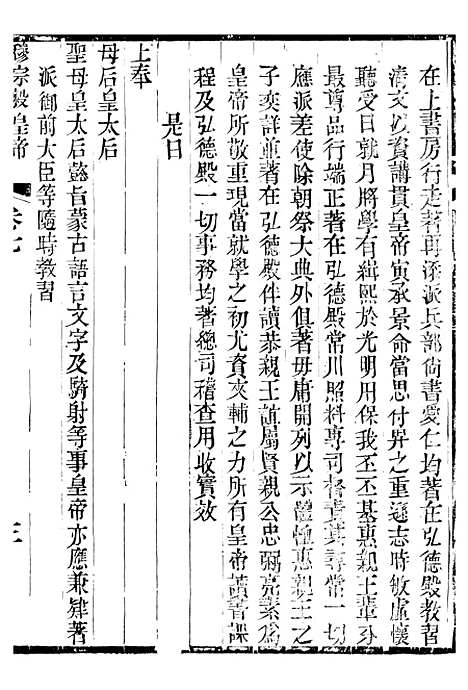 在上書房行走著再添派兵部尚書愛仁均著在弘德殿教習
清文以資講貫皇帝寅承景命當思付畀之重遜志時敏虛懷
聽受日就月將學有緝熙於光明用保我丕丕基惠親王輩分
最尊品行端正著在弘德殿常川照料專司督責其尋常一切
應派差使除朝祭大典外俱著毋庸開列以示體恤惠親王之
子奕詳並著在弘德殿伴讀恭親王誼屬賢親公忠弼亮素為
皇帝所敬重現當就學之初尤資夾輔之力所有皇帝讀書課
程及弘德殿一切事務均著總司稽查用收實效
是日
上奉
母后皇太后
聖母皇太后懿旨蒙古語言文字及騎射等事皇帝亦應兼肄著
派御前大臣等隨時教習
穆宗毅皇帝 卷七 三